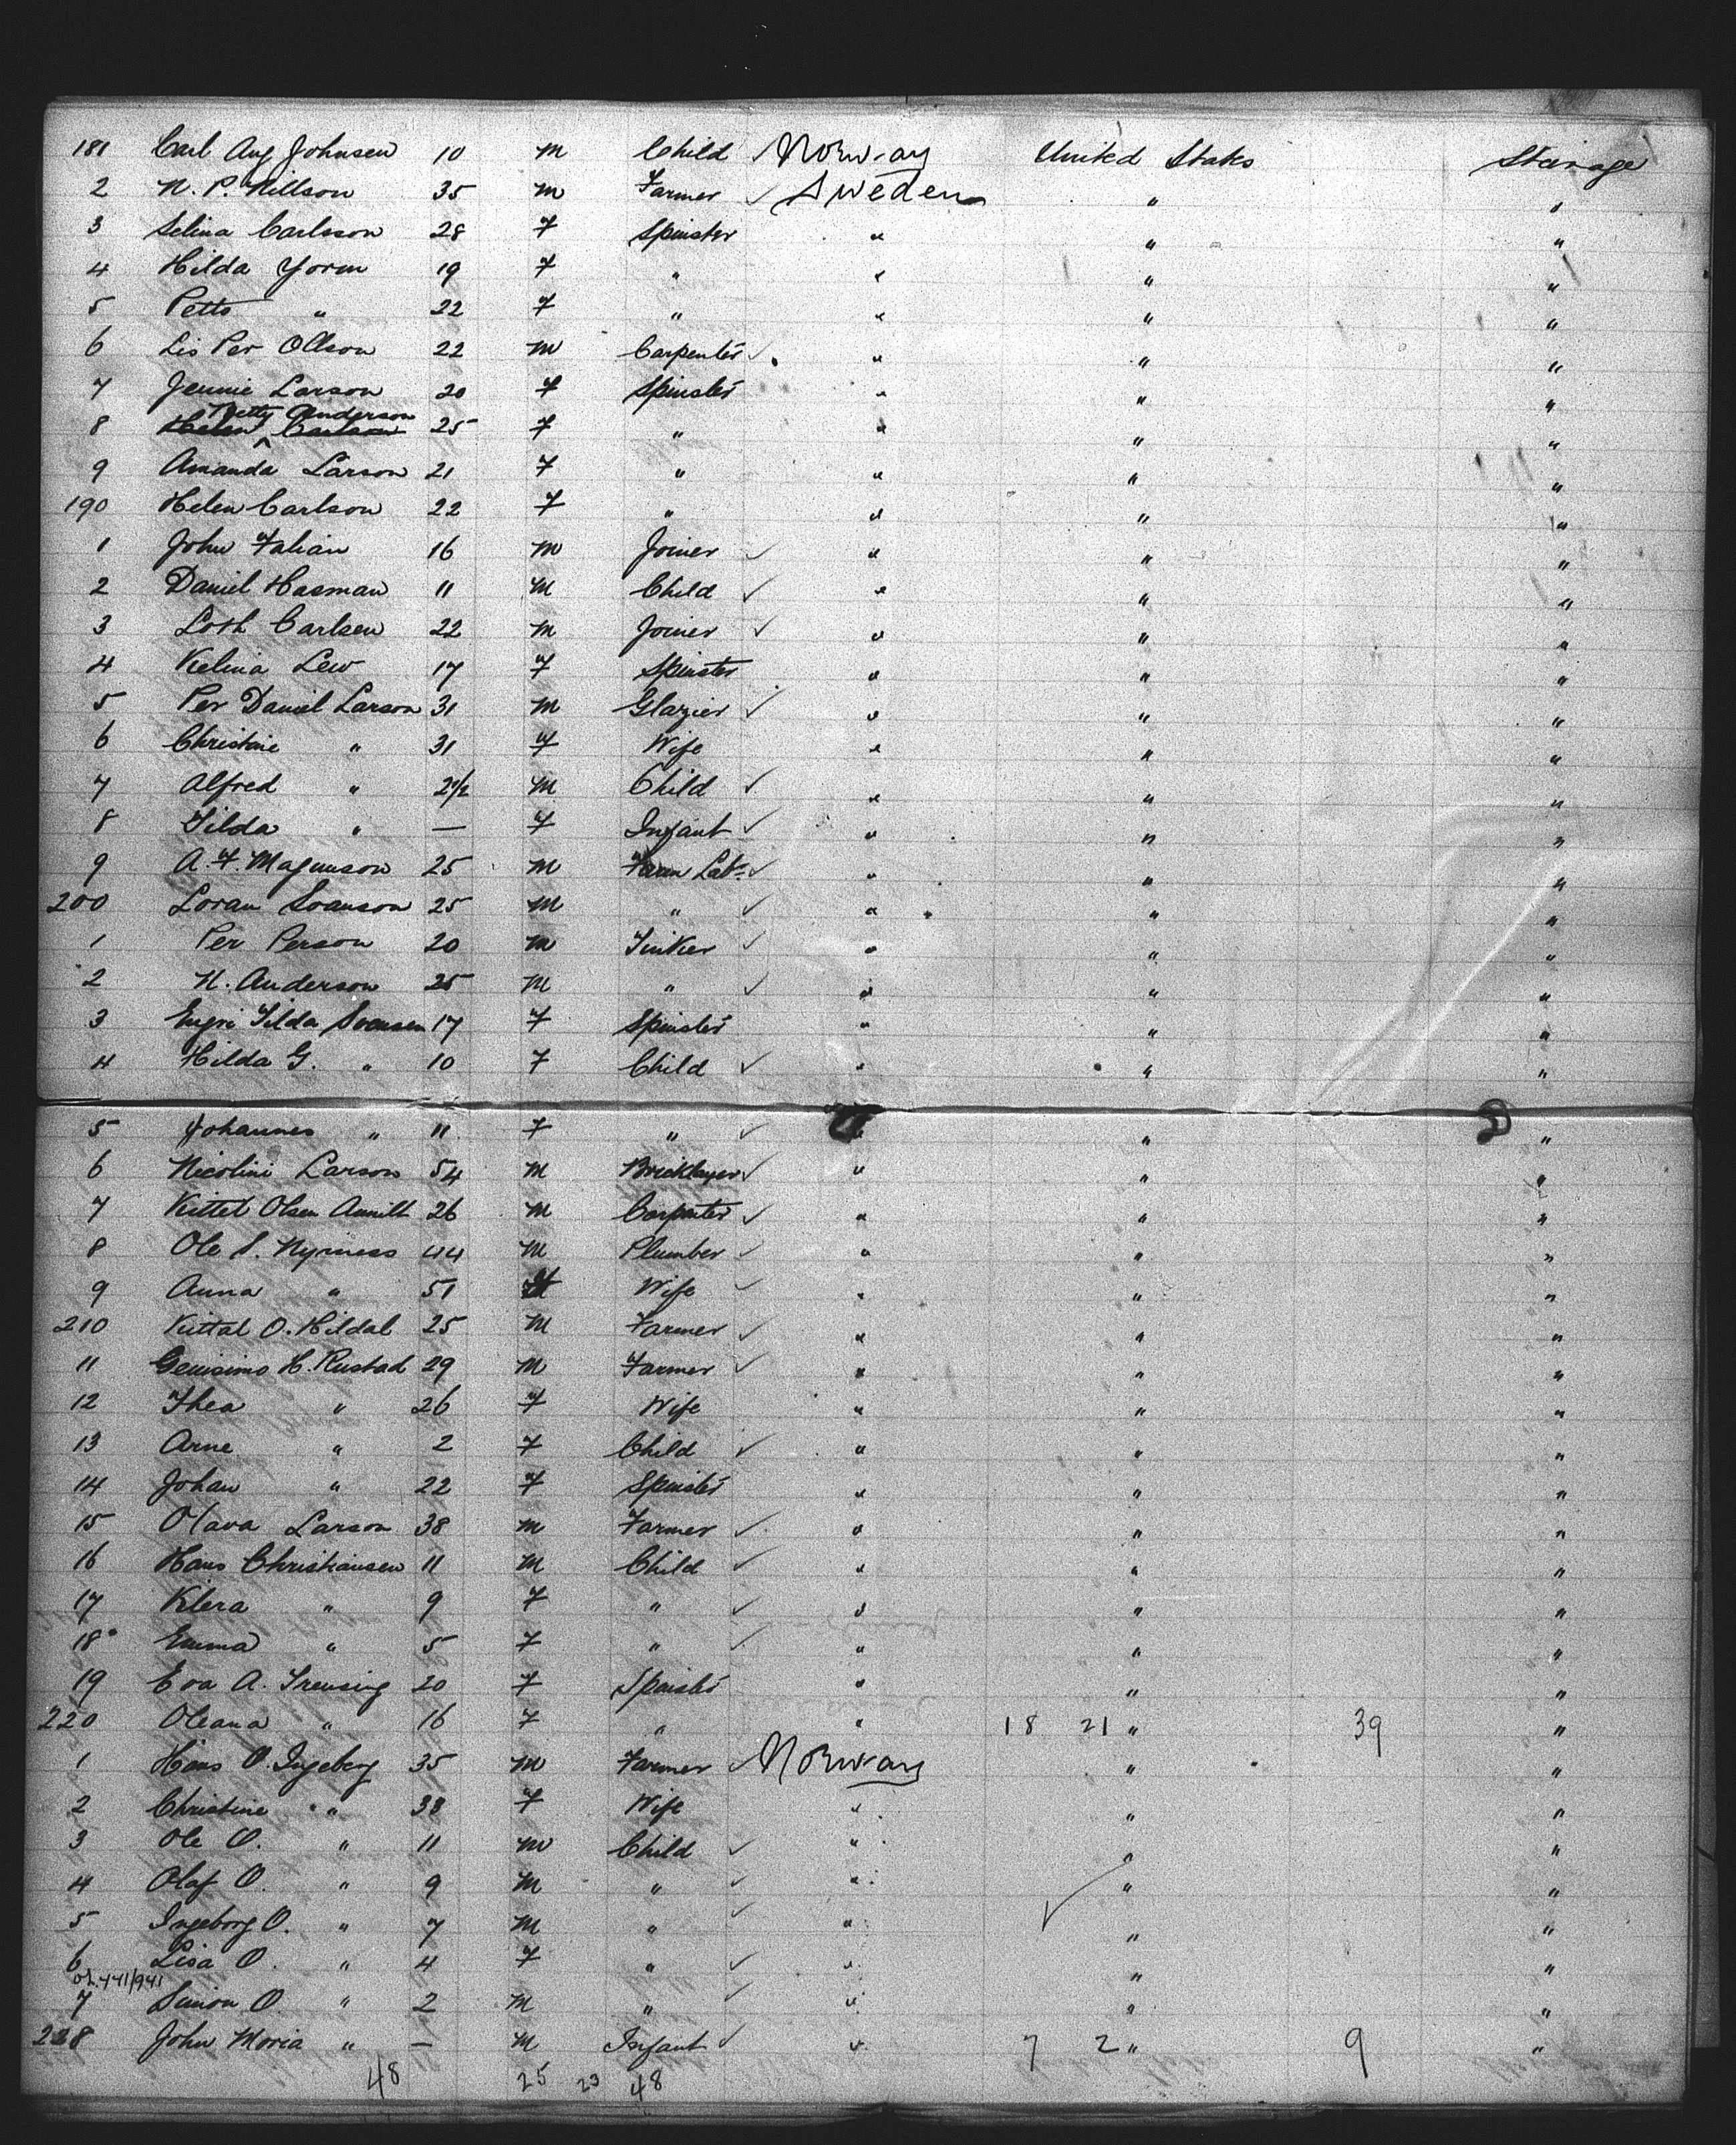 181 Carl Aug Johnsen 10 m Child ✓ Norway United States Steirage
2 N. P. Nillson 35 m Farmer ✓ Sweden " "
3 Selina Carlsson 28 F Spinster " " "
4 Hilda Yorm 19 F " " " "
5 Petts " 22 F " " " "
6 Lis Per Ollson 22 m Carpenter ✓ " " "
7 Jennie Larson 20 F Spinster " " "
Betty Anderson
8 Helen Carlson 25 F " " " "
9 Amanda Larson 21 F " " " "
190 Helen Carlson 22 F " " " "
1 John Falian 16 m Joiner ✓ " " "
2 Daniel Hasman 11 m Child ✓ " " "
3 Loth Carlsen 22 m Joiner ✓ " " "
4 Kelina Lew 17 F Spinster " " "
5 Per Daniel Larson 31 m Glazier ✓ " " "
6 Christine " 31 F Wife " " "
7 Alfred " 2½ m Child ✓ " " "
8 Tilda " — F Infant ✓ " " "
9 A. F. Magnuson 25 m Farm Labr ✓ " " "
200 Loran Svanson 25 m " ✓ " " "
1 Per Person 20 m Tinker ✓ " " "
2 N. Anderson 25 m " ✓ " " "
3 Engri Tilda Svansen 17 F Spinster " " "
4 Hilda G. " 10 F Child ✓ " " "
5 Johannes " 11 F " ✓ " " "
6 Nicolini Larson 54 m Bricklayer ✓ " " "
7 Kittel Olsen 26 m Carpenter ✓ " " "
8 Ole S. Nyrness 44 m Plumber ✓ " " "
9 Anna " 51 F Wife ✓ " " "
210 Kittal O. Hildal 25 m Farmer ✓ " " "
11 H. Rustad 29 m Farmer ✓ " " "
12 Thea " 26 F Wife " " "
13 Arne " 2 F Child ✓ " " "
14 Johan " 22 F Spinster " " "
15 Olava Larson 38 m Farmer ✓ " " "
16 Hans Christiansen 11 m Child ✓ " " "
17 Klera " 9 F " ✓ " " "
18 Emma " 5 F " ✓ " " "
19 Eva A. Treusing 20 F Spinster " " "
220 Oleana " 16 F " " 18 21 " 39 "
1 Hans O. Ingeberg 35 m Farmer ✓ Norway " "
2 Christine " 38 F Wife " " "
3 Ole O. " 11 m Child ✓ " " "
4 Olaf O. " 9 m " ✓ " " "
5 Ingeborg O. " 7 m " ✓ " " "
6 Lisa O. " 4 F " ✓ " " "
7 Simon O. " 2 m " ✓ " " "
228 John Moria " — m Infant ✓ " 7 2 " 9 "
48 25 23 48